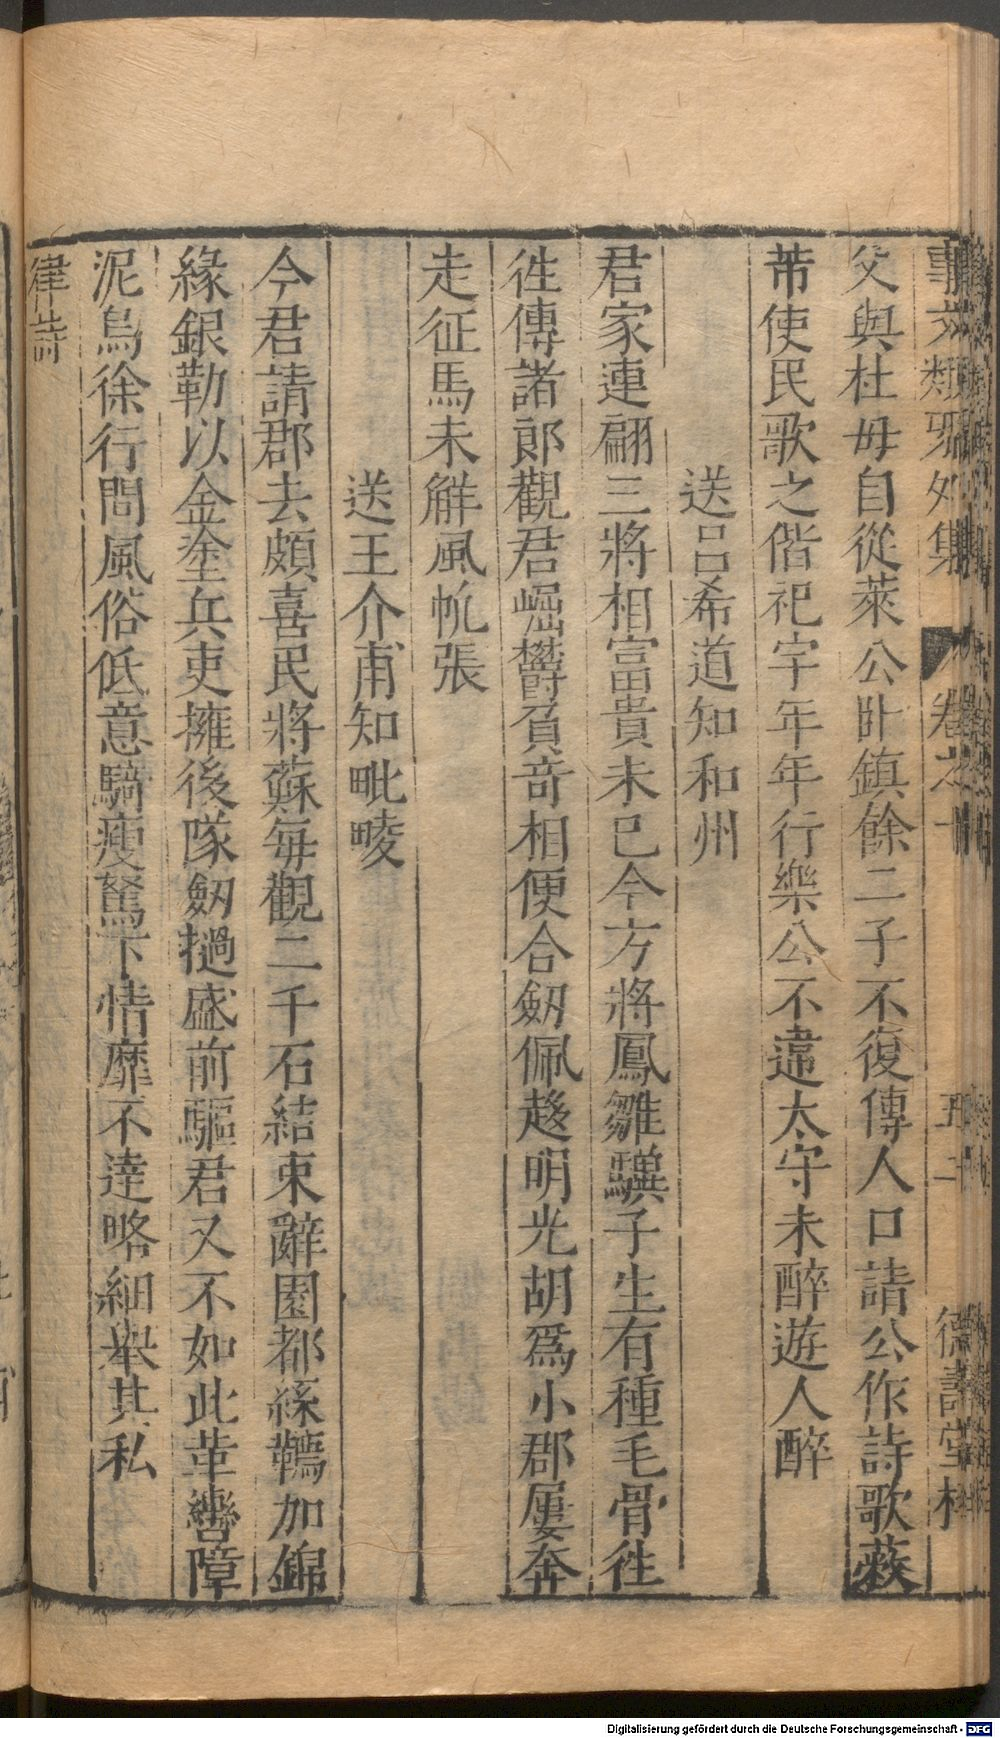 事文類聚外集 卷之十 五十二 德壽堂梓
父與杜母自從萊公卧鎮餘二子不復傳人口請公作詩歌蔽
芾使民歌之偕祀宇年年行樂公不違太守未醉遊人醉
送呂希道知和州
君家連翩三將相富貴未已今方將鳳雛驥子生有種毛骨徃
徃傳諸郎觀君崛欝負奇相便合劒佩趍明光胡爲小郡屢奔
走征馬未觧風帆張
送王介甫知毗陵
今君請郡去頗喜民將蘇每觀二千石結束辭國都絲韉加錦
緣銀勒以金塗兵吏擁後隊劒撾盛前驅君又不如此革轡障
泥烏徐行問風俗低意騎瘦駑下情靡不達略細舉其私
律詩
Digitalisierung gefördert durch die Deutsche Forschungsgemeinschaft - DFG